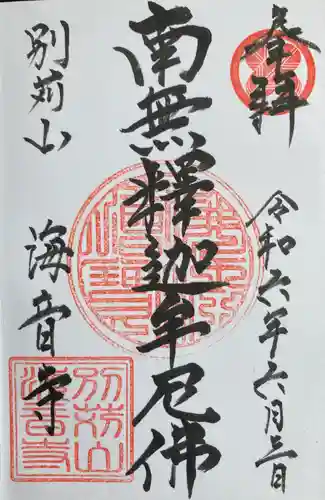 奉拝
令和六年六月三日
南無釋迦牟尼佛
別苅山
海音寺
別苅山
海音寺